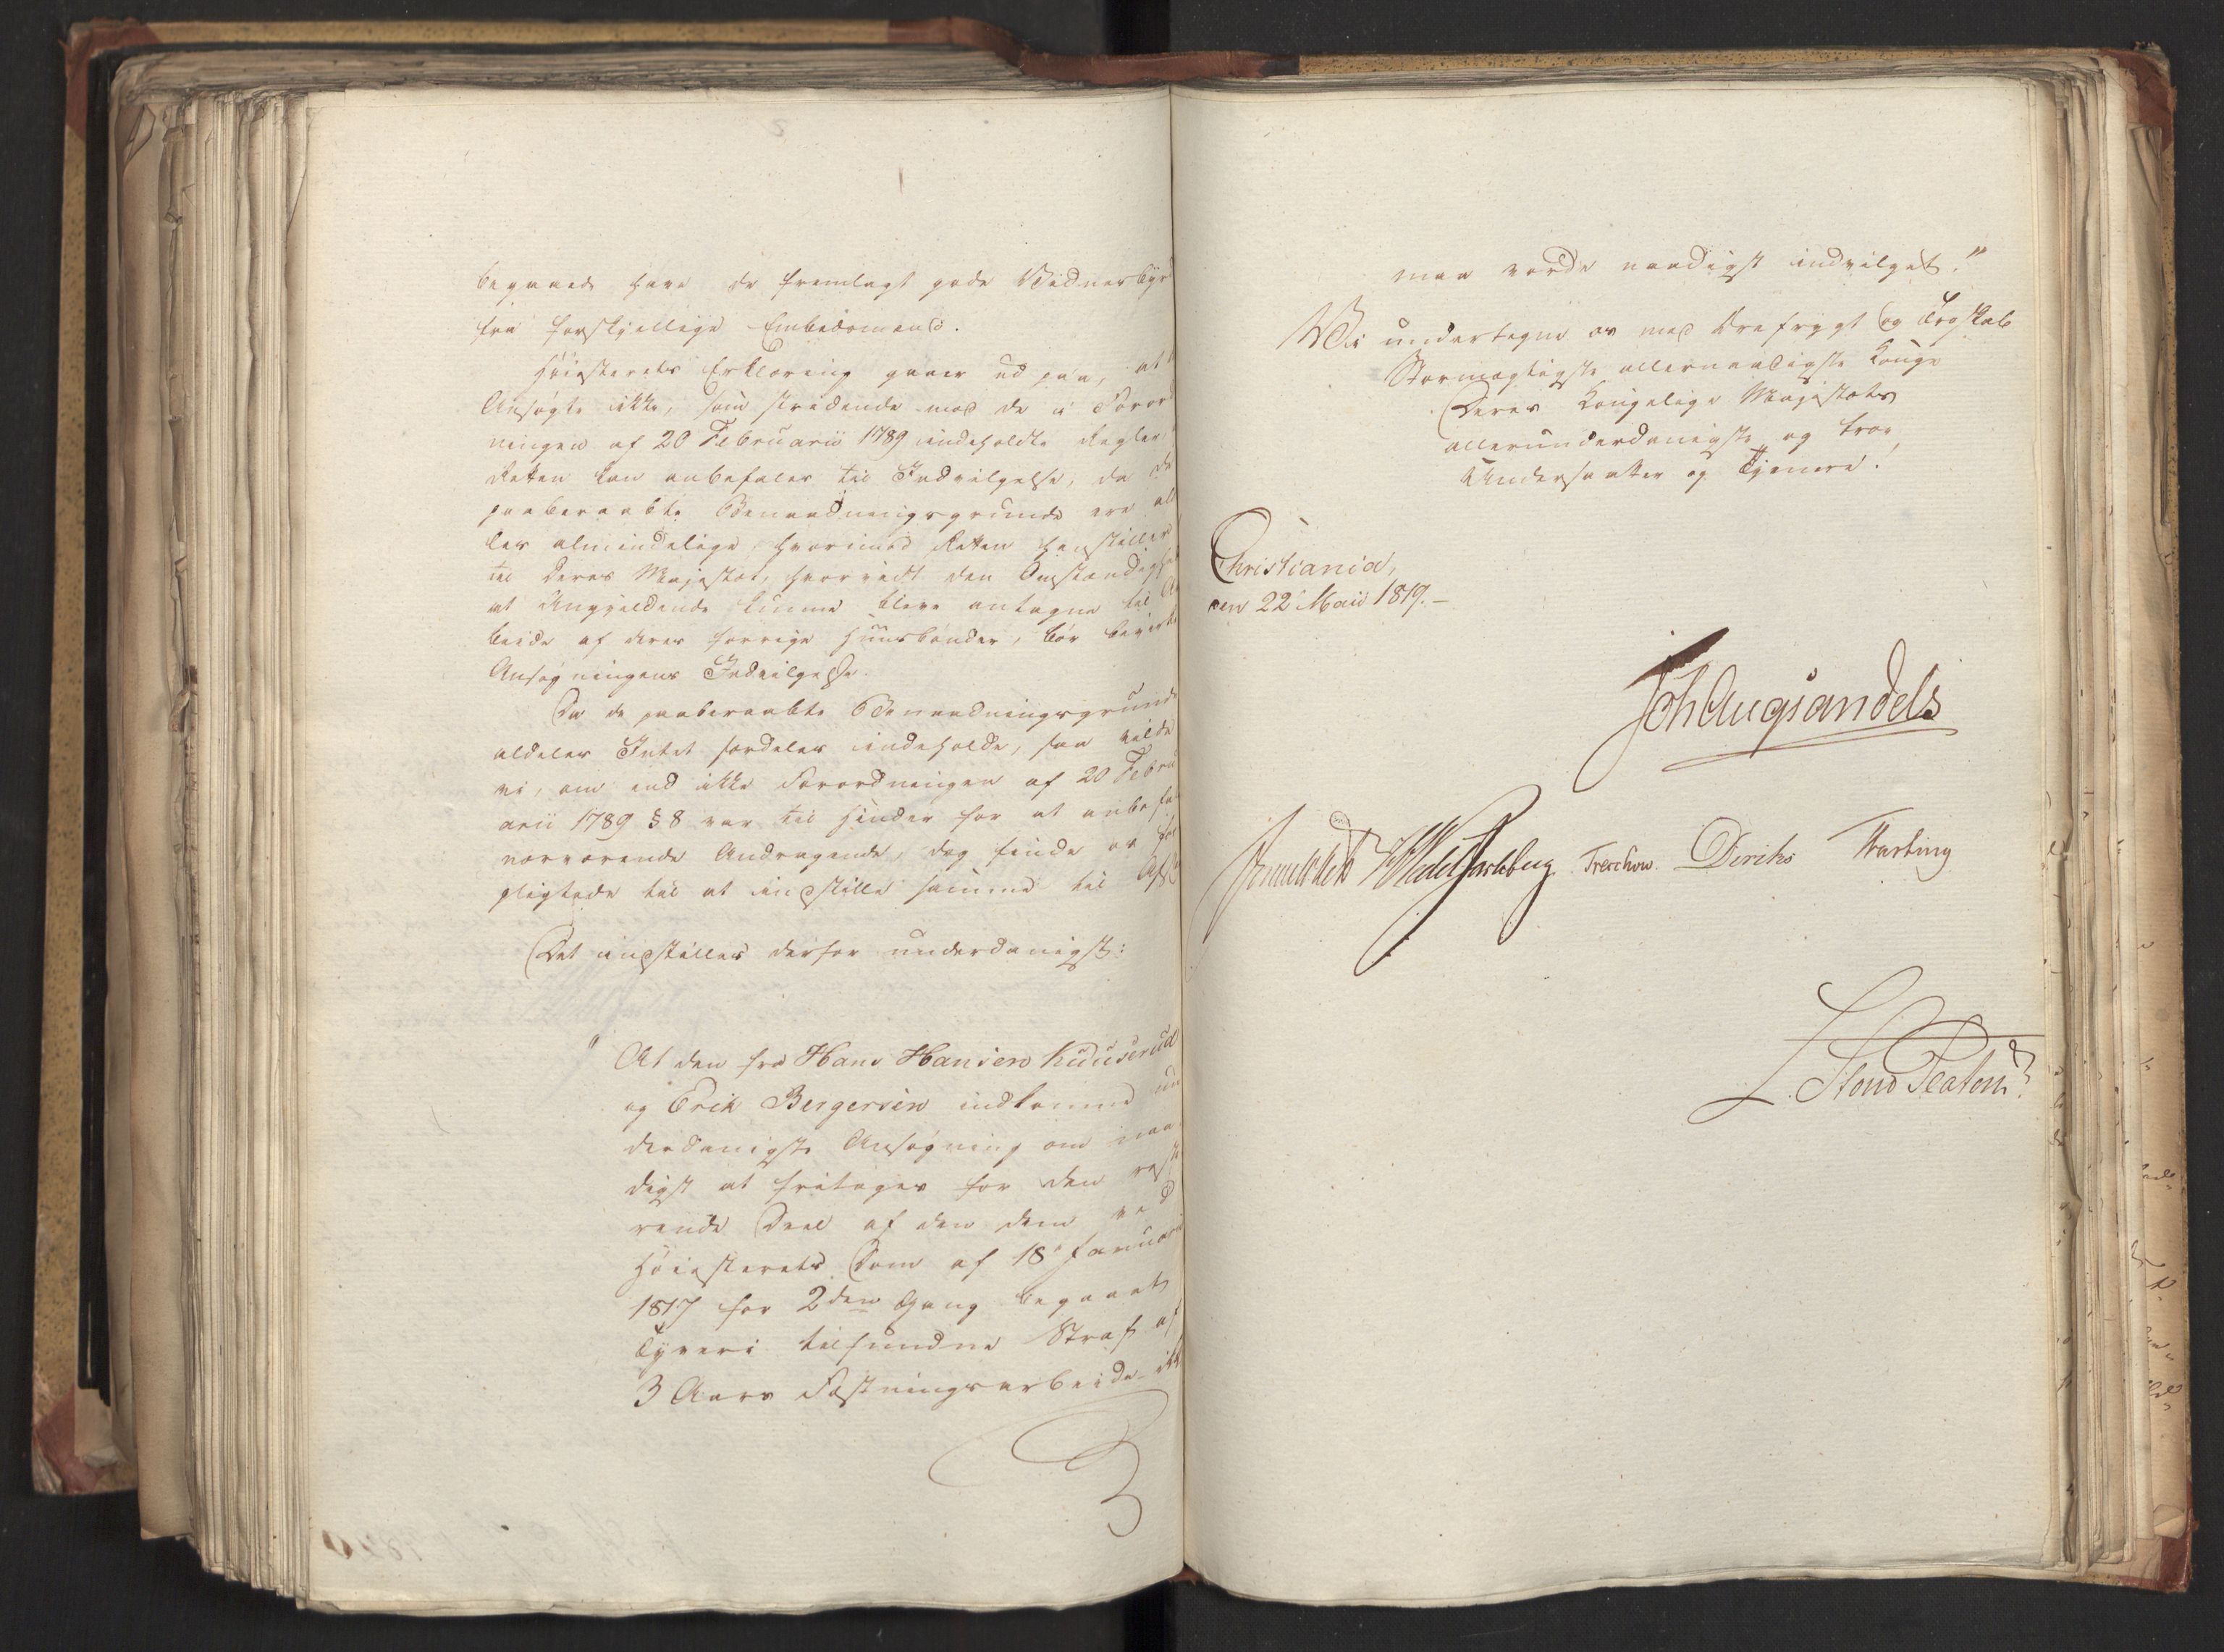 begaaede have de fremlagt gode Vidnesbyrd
fra forskjellige Embedsmænd.
Høiesterets Erklæring gaaer ud paa, at
Ansøgte ikke, som stridende mod de i Forord
ningen af 20 Februarii 1789 indeholdte Regler,
Retten kan anbefales til Indvilgelse, da de
paaberaabte Benaadningsgrunde ere al
les almindelige, hvorimod Retten henstiller
til Deres Majestæt, hvorvidt den Omstændighed
at Angjeldende kunne blive antagne til Ar
beide af deres forrige Huusbonder, bør bevirke
Ansøgningens Indvilgelse.
Da de paaberaabte Benaadningsgrunde
aldeles Intet særdeles indeholde, saa vilde
vi, om end ikke Forordningen af 20 Febru
arii 1789 § 8 var til Hinder for at anbefale
nærværende Andragende, dog finde os for
pligtede til at indstille samme til Afslag
Det indstilles derfor underdanigst:
" At den fra Hans Hansen Kuuserud
og Erik Bergersen indkomne un
derdanigste Ansøgning om naa
digst at fritages for den reste
rende Deel af den dem ved
Høiesterets Dom af 18 Januarii
1817 for 2den Gang begaaet
Tyveri tilfundne Straf af
3 Aars Fæstningsarbeide ikke
maa vorde naadigst indvilget."
Vi undertegne os med Ærefrygt og Troskab
Stormægtigste allernaadigste Konge
Deres Kongelige Majestæts
allerunderdanigste og troe
Undersaatter og Tjenere.
Christiania,
den 22 Maii 1819.
Joh Aug Sandels
Sommerhielm HWedel Jarlsberg Treschow. Diriks Fasting
L. Stoud Platou